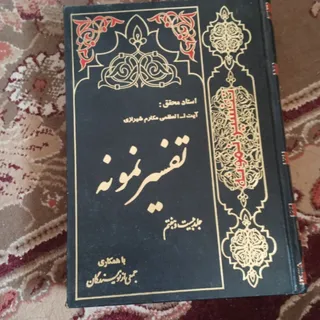 استاد محقق :
آیت ا... العظمی مکارم شیرازی
تفسیر نمونه
جلد بیست و هفتم
با همکاری
جمعی از نویسندگان
تفسیر نمونه